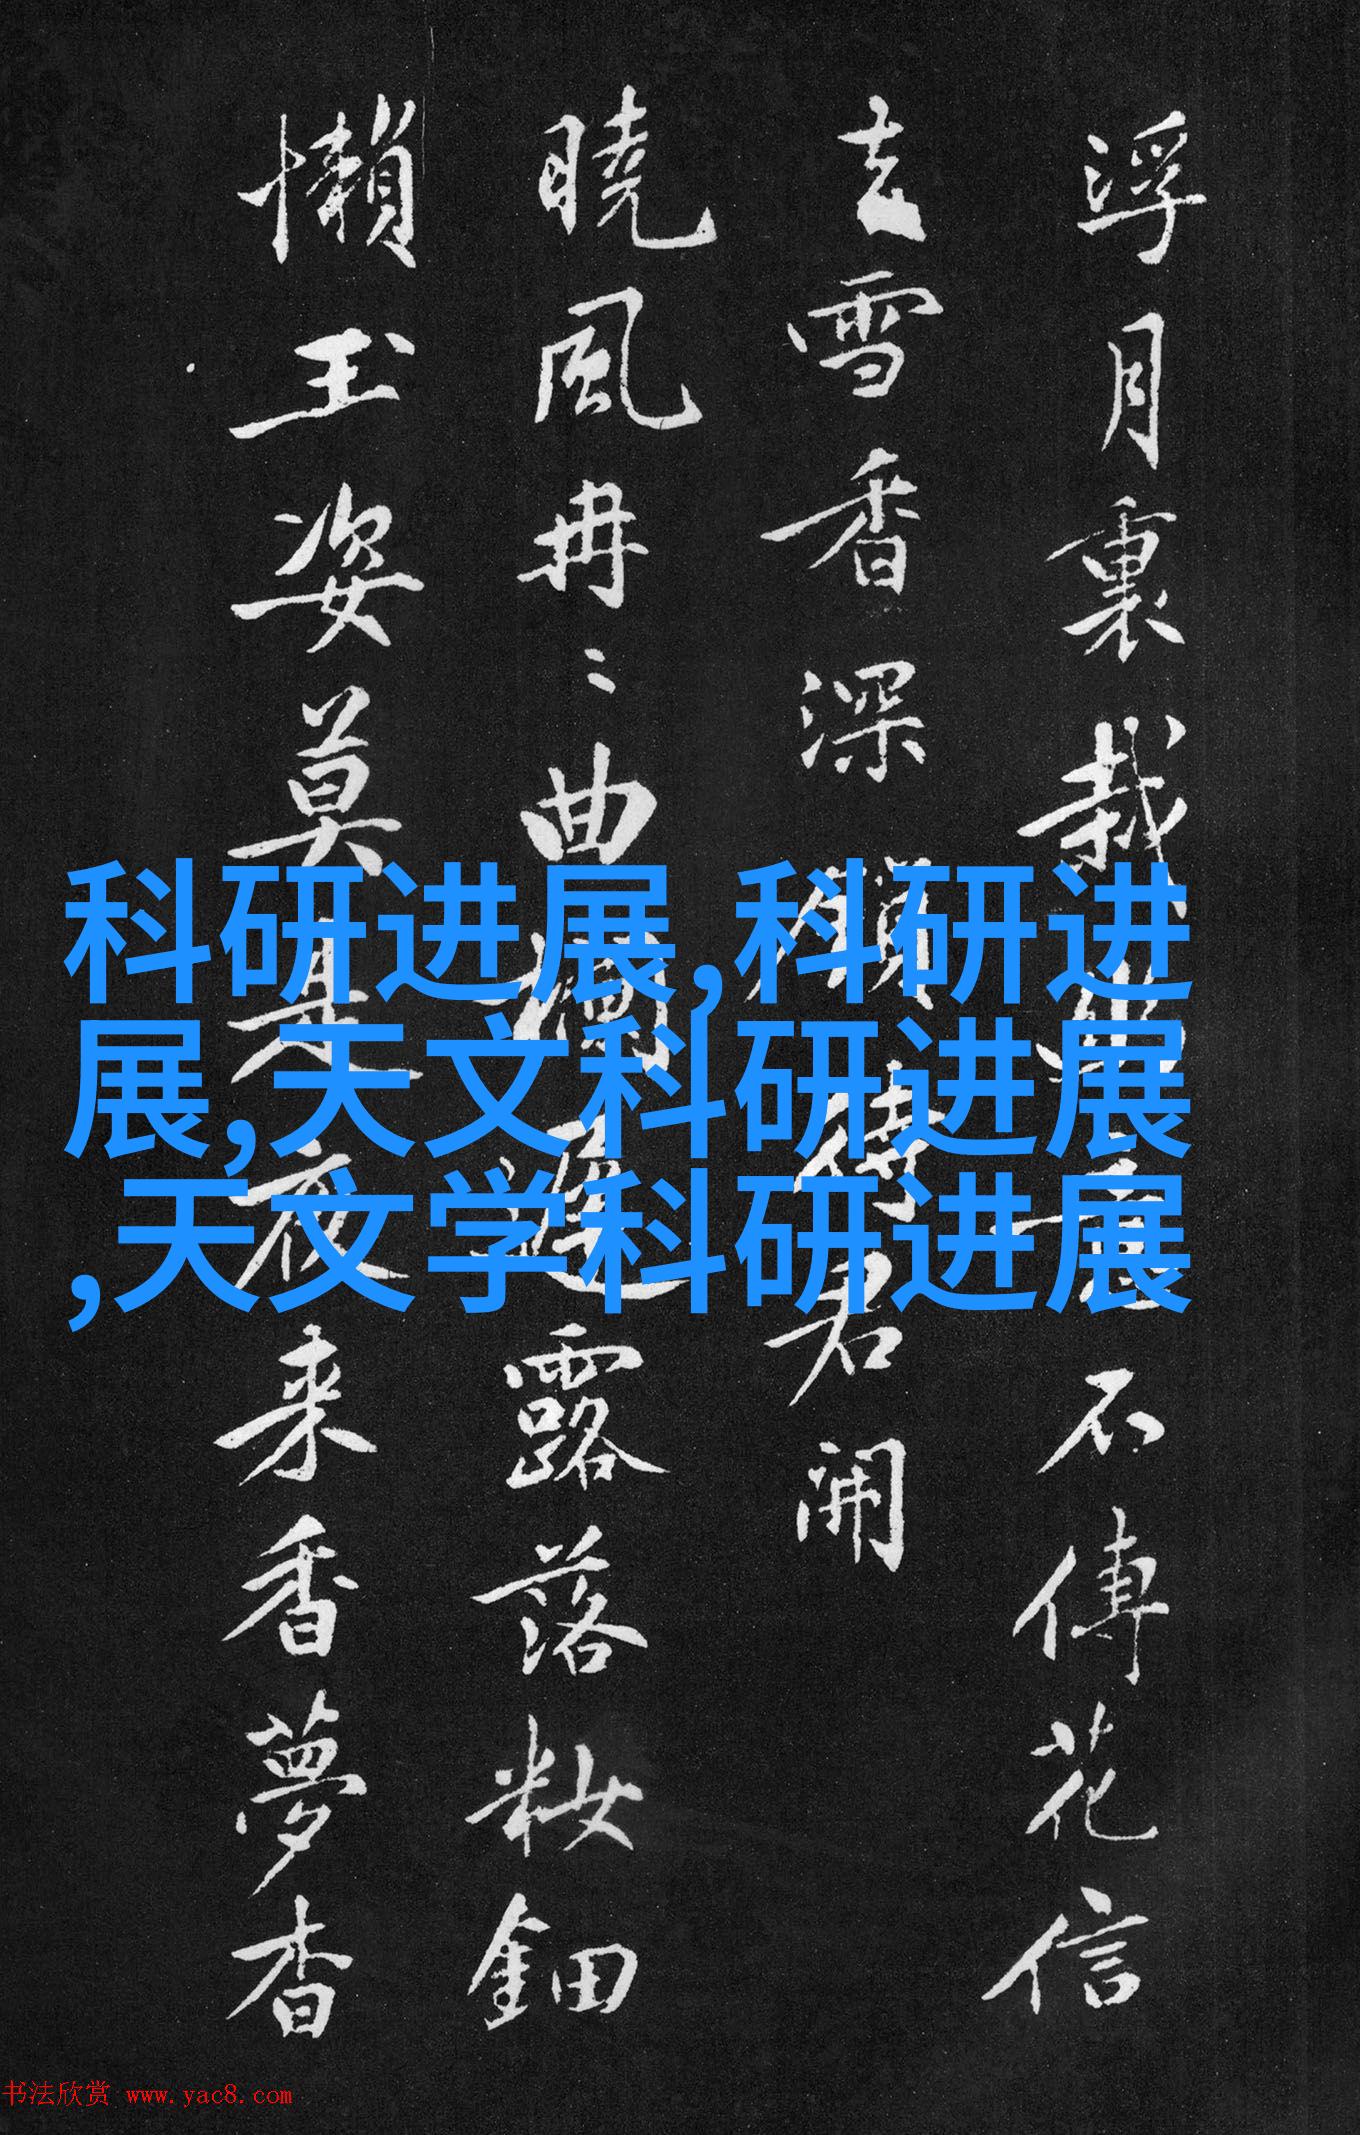 浮月裏栽不傳花信
去雪香深待君開
曉風冉〻曲欄遲露落籹鈿
懶玉姿莫是夜来香夢杳
科研进展,科研进
展,天文科研进展
,天文学科研进展
书法欣赏 www.yac8.com